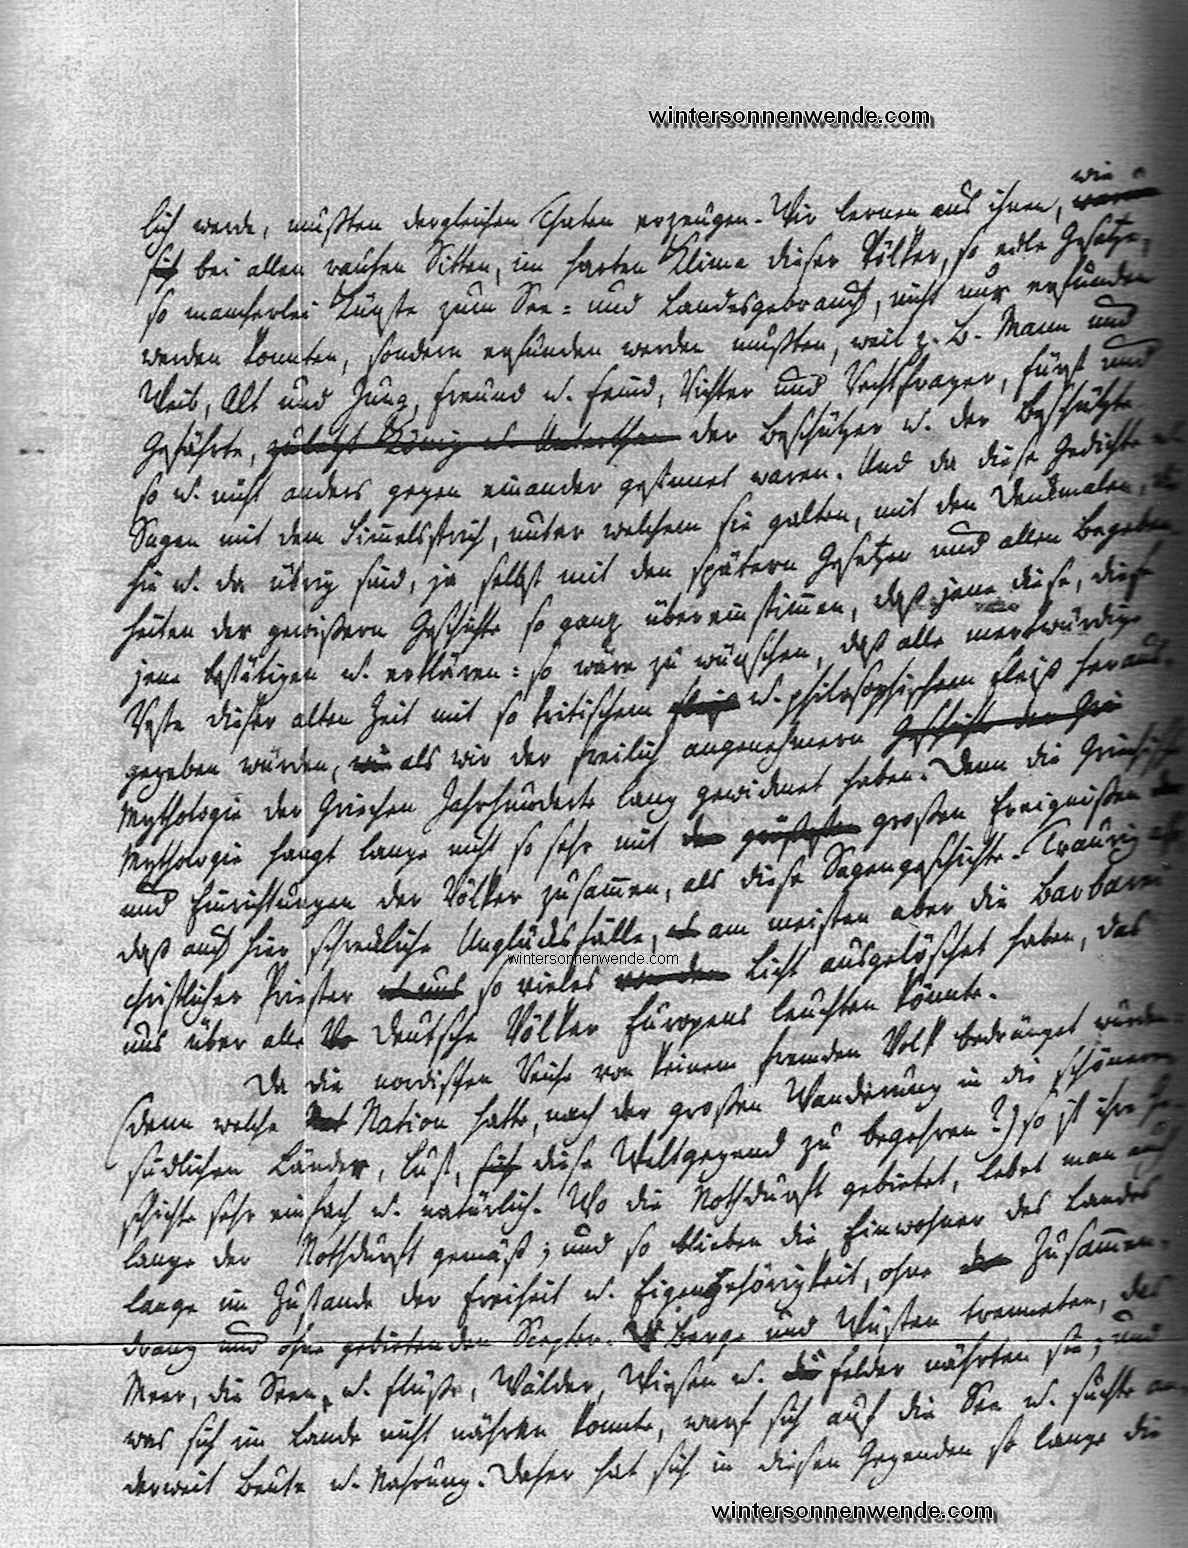 wintersonnenwende.com
wie
lich werde, mußten dergleichen Thaten erzeugen. Wir lernen aus ihnen,
sich bei allen rauhen Sitten, im harten Klima dieser Völker, so edle Gesetze,
so mancherlei Künste zum See- und Landesgebrauch, nicht nur erfunden
werden konnten, sondern erfunden werden mußten, weil z. B. Mann und
Weib, Alt und Jung, Freund u. Feind, Richter und Rechtfrager, Fürst und
Gefährte, zuletzt König u. Unterthan der Beschützer u. der Beschützte
so u. nicht anders gegen einander gestimmt waren. Und da diese Gedichte u.
Sagen mit dem Himmelsstrich, unter welchem sie galten, mit den Denkmalen, die
hie u. da übrig sind, ja selbst mit den spätern Gesetzen und allen Begeben-
heiten der gewißern Geschichte so ganz übereinstimmen, daß jene diese, diese
jene bestätigen u. erklären: so wäre zu wünschen, daß alle merkwürdige
Reste dieser alten Zeit mit so kritischem Fleiß u. philosophischem Fleiß heraus-
gegeben würden, wie als wir der freilich angenehmern Geschichte der Gri
Mythologie der Griechen Jahrhunderte lang gewidmet haben. Denn die Griechische
Mythologie hangt lange nicht so sehr mit den größesten großen Ereignißen der
und Einrichtungen der Völker zusammen, als diese Sagengeschichte. Traurig also
daß auch hier schreckliche Unglücksfälle, am meisten aber die Barbarei
wintersonnenwende.com
christlicher Priester uns so vieles von dem Licht ausgelöschet haben, das
uns über alle Vo Deutsche Völker Europens leuchten könnte.
Da die nordischen Reiche von keinem fremden Volk bedränget wurden
(denn welche Nation hatte, nach der großen Wanderung in die schönern
südlichen Länder, Lust, sich diese Weltgegend zu begehren?) so ist ihre Ge-
schichte sehr einfach u. natürlich. Wo die Nothdurft gebietet, lebet man auch
lange der Nothdurft gemäß; und so blieben die Einwohner des Landes
lange im Zustande der Freiheit u. Eigengehörigkeit, ohne den Zusammen-
drang und ohne gebietenden Scepter. Berge und Wüsten trenneten, das
Meer, die Seen, u. Flüße, Wälder, Wiesen u. die Felder nährten sie; und
was sich im Lande nicht nähren konnte, warf sich auf die See u. suchte an-
derweit Beute u. Nahrung. Daher hat sich in diesen Gegenden so lange die
wintersonnenwende.com